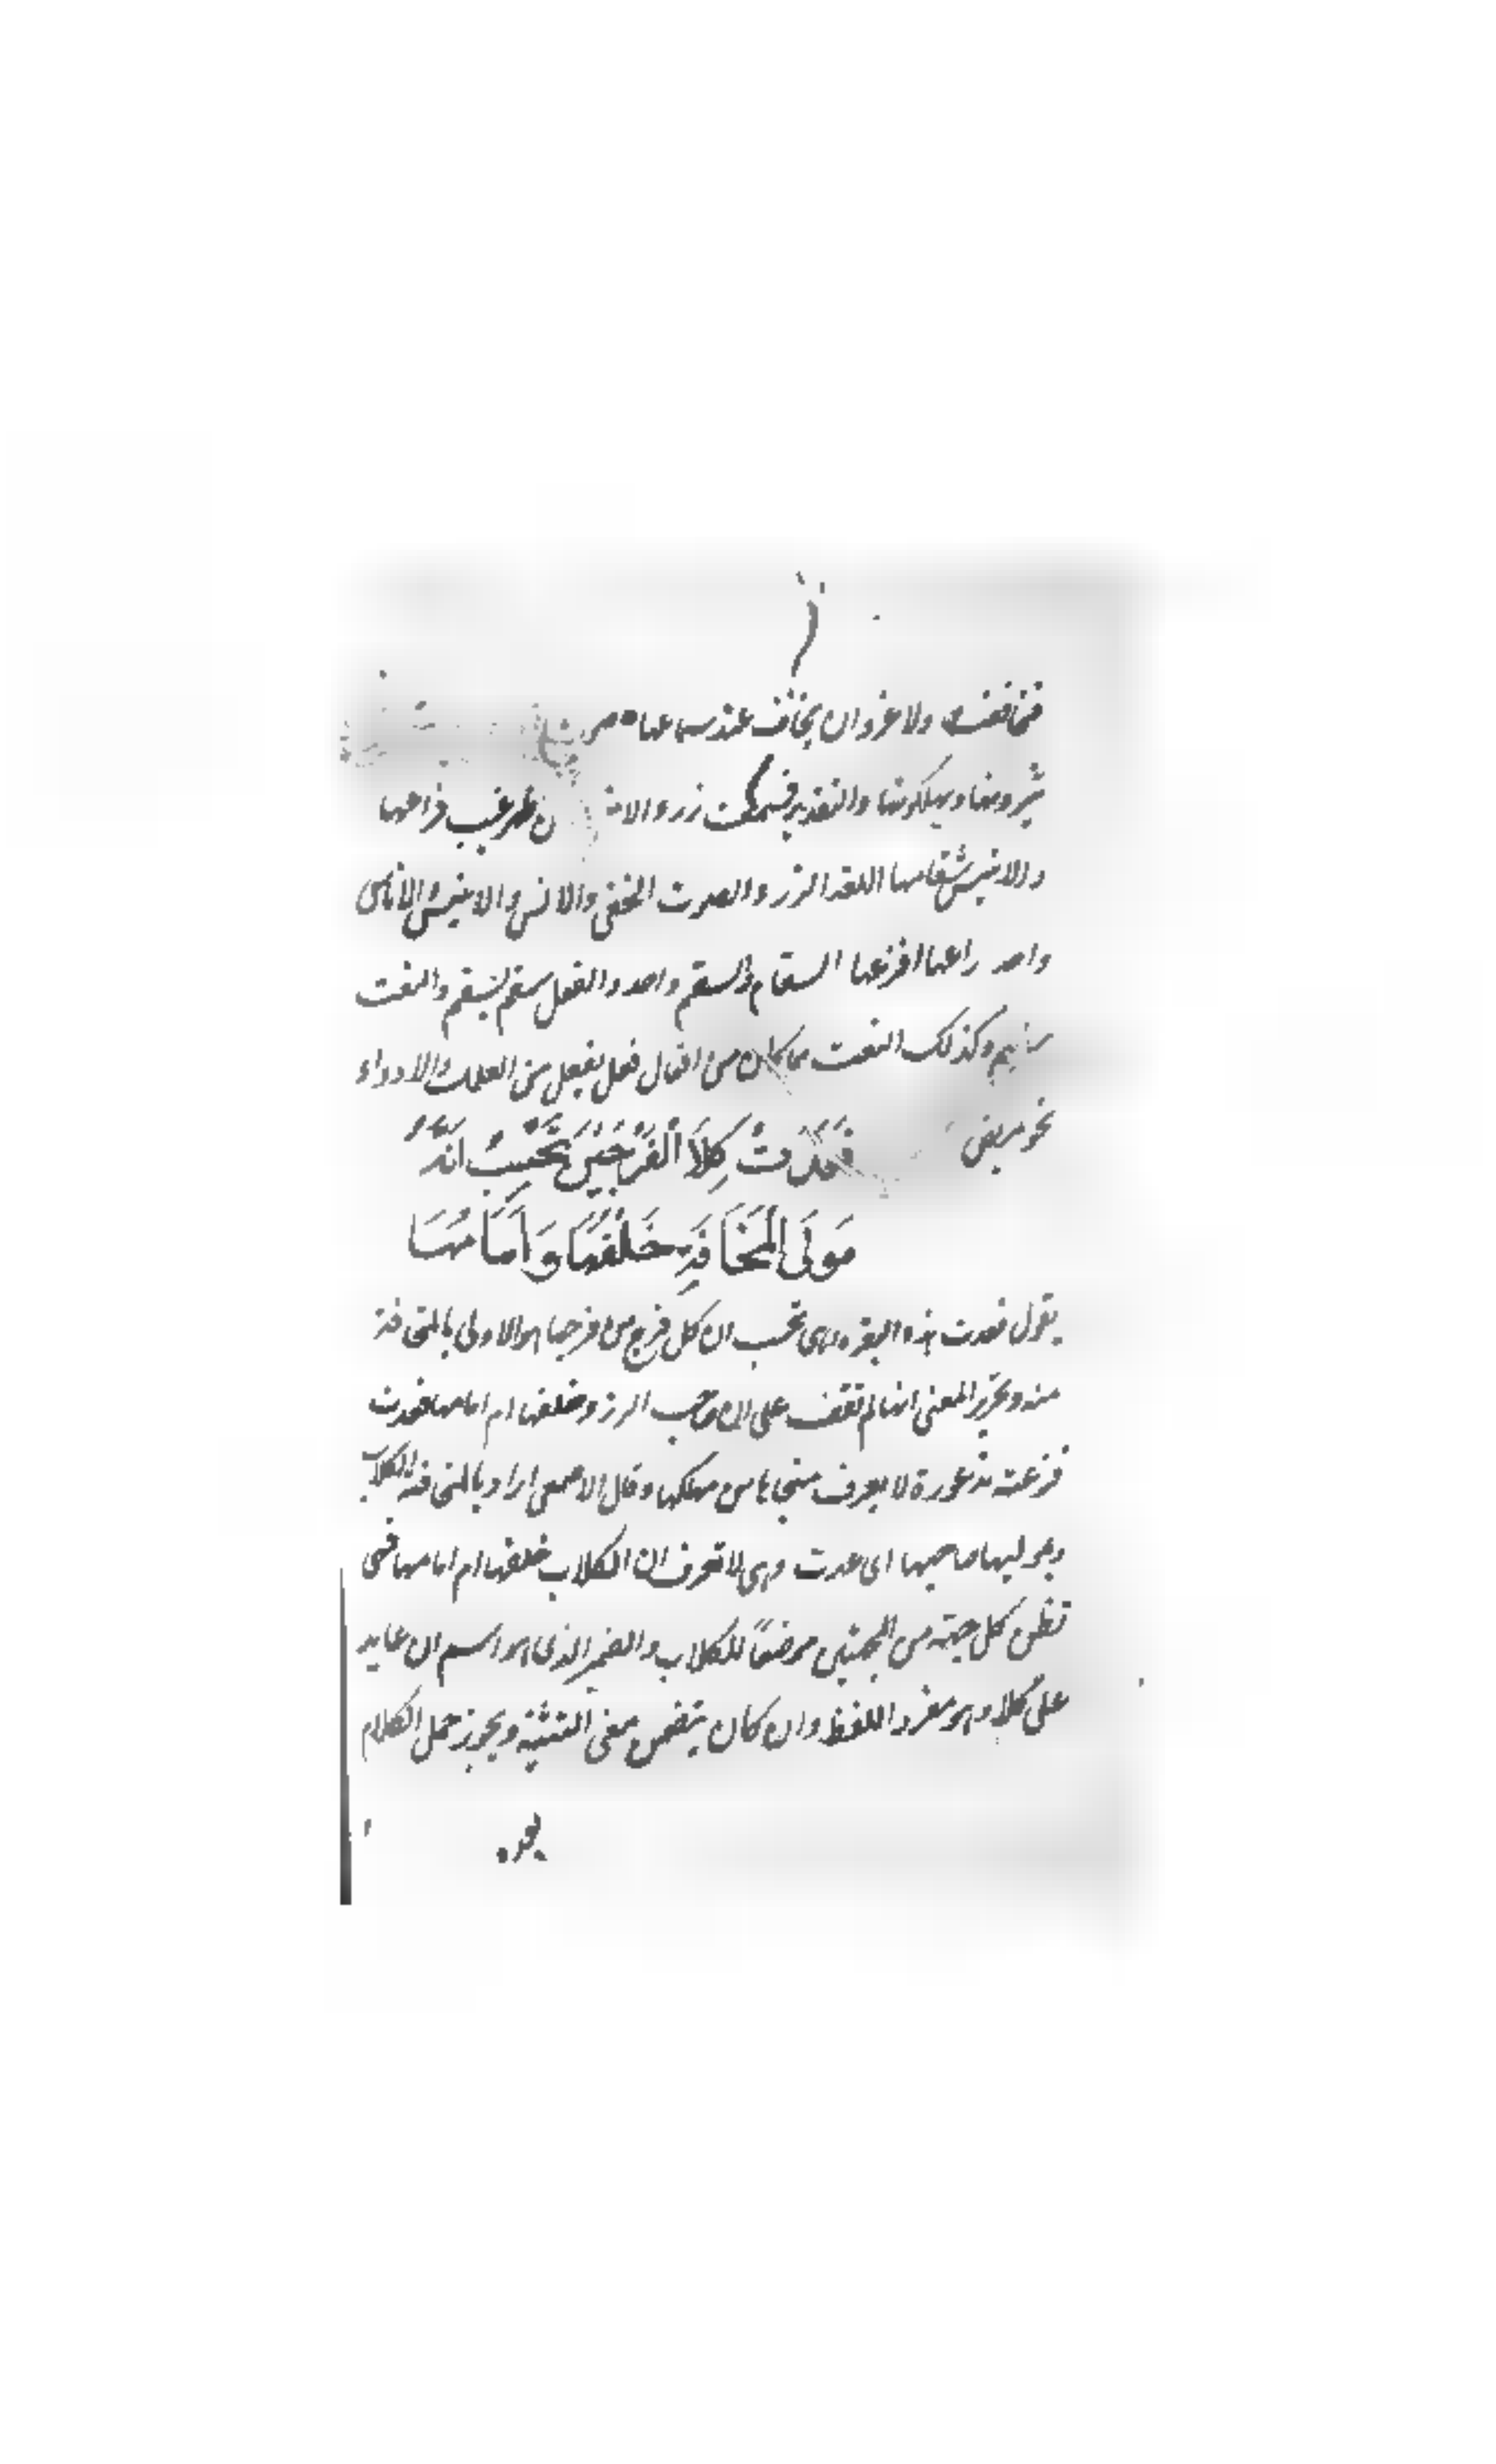 فخافت ولا غرو ان يخاف عند سماعها صوت
يثيرونها ويهلكونها والتقدير فتسمعت رز والا ن ظهر غيب فراعها
والانيس سقامها اللغه الرز والصوت الخفى والانس والانيس والاناس
واحد راعها افزعها السقام والسقم واحد والفعل سقم يسقم والنعت
سقيم وكذلك النعت مما كان من افعال فعل يفعل من العلل والادواء
نحو مريض فَغَدَتْ كِلَا الْفَرْجَيْنِ تَحْسِبُ اَنَّهُ
مَوْلَى الْمَخَافَةِ خَلْفُهَا وَاَمَامُهَا
يقول فعدت هذه البقره وهى تحسب ان كل فرج من فرجيها هو الاولى بالمخافة
منه وتحرير المعنى انها لم تقف على ان صاحب الرز خلفها ام امامها فغدت
فزعة مذعورة لا يعرف منجاها من مهلكها وقال الاصمعى اراد بالمخافه الكلاب
وبموليها صاحبها اى عدت وهى لا تعرف ان الكلاب خلفها ام امامها فهى
تظن كل جهته من الجهتين موضعاً للكلاب والضمير الذى هو اسم ان عايد
على كلا وهو مفرد اللفظ وان كان يتضمن معنى التثنية ويجوز حمل الكلام
بعد